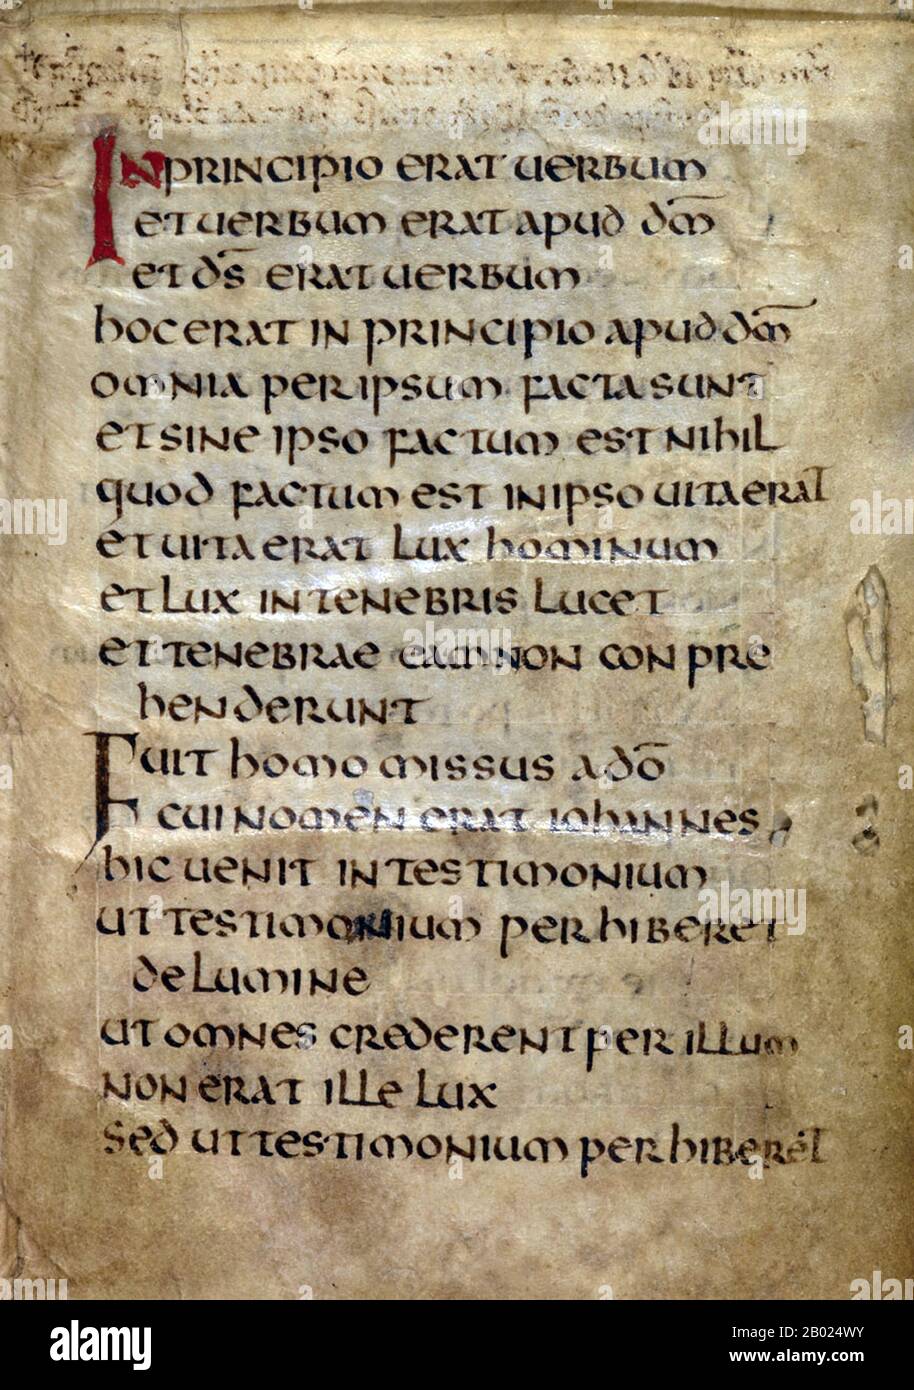 IN PRINCIPIO ERAT UERBUM
ET UERBUM ERAT APUD DM̅
ET DS̅ ERAT UERBUM
HOC ERAT IN PRINCIPIO APUD DM̅
OMNIA PER IPSUM FACTA SUNT
ET SINE IPSO FACTUM EST NIHIL
QUOD FACTUM EST IN IPSO UITA ERAT
ET UITA ERAT LUX HOMINUM
ET LUX IN TENEBRIS LUCET
ET TENEBRAE EAM NON CONPRE
HENDERUNT
FUIT HOMO MISSUS A DO̅
CUI NOMEN ERAT IOHANNES
HIC UENIT IN TESTIMONIUM
UT TESTIMONIUM PERHIBERET
DE LUMINE
UT OMNES CREDERENT PER ILLUM
NON ERAT ILLE LUX
SED UT TESTIMONIUM PERHIBERET
alamy
Image ID: 2B024WY
www.alamy.com